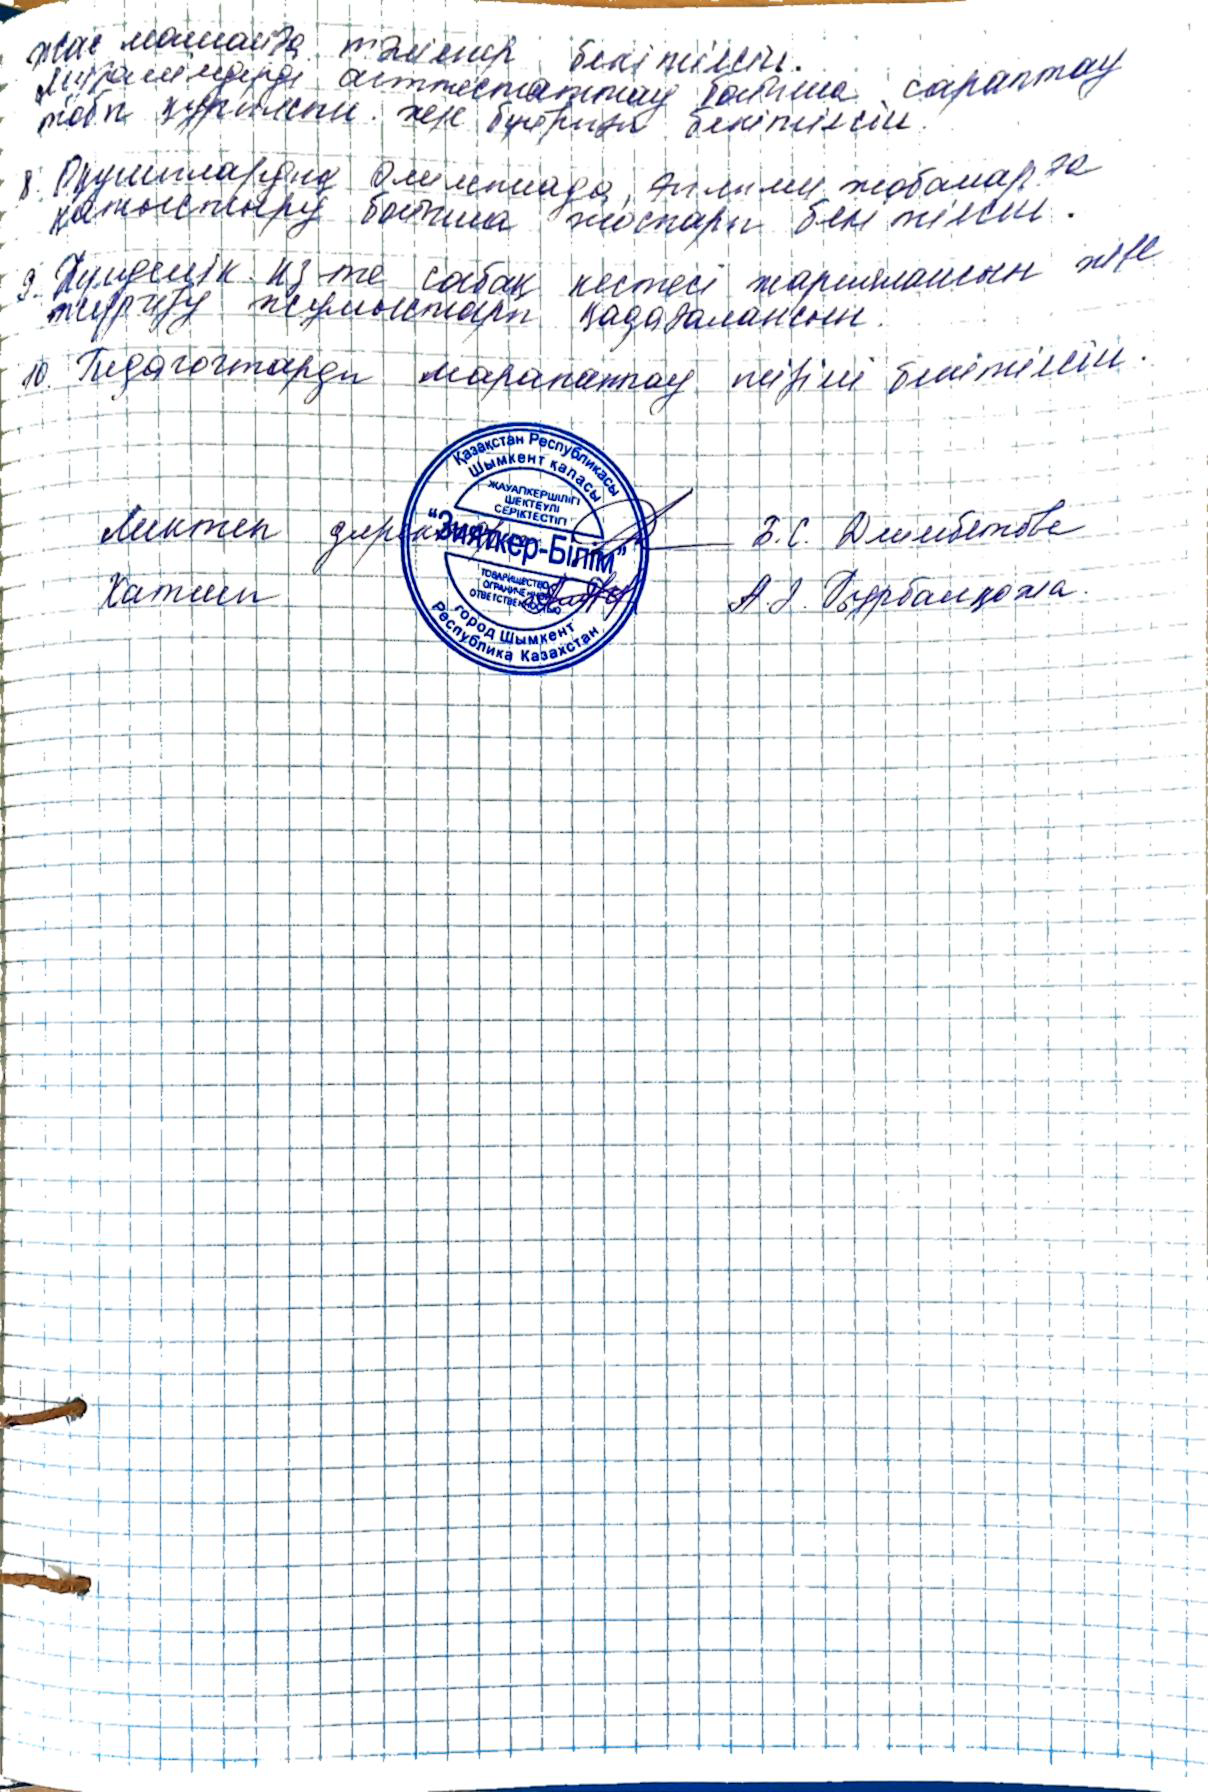 жас маманға тәлімгер бекітілсін.
Мұғалімдерді аттестаттау бойынша сараптау
тобы құрылсын. және бұйрығы бекітілсін.
8. Оқушыларды Олимпиада, ғылыми жобаларға
қатыстыру бойынша жоспары бекітілсін.
9. Күнделік.кз-те сабақ кестесі жариялансын және
жүргізу жұмыстары қадағалансын.
10. Педагогтарды марапаттау тізімі бекітілсін.
Қазақстан Республикасы
Шымкент қаласы
ЖАУАПКЕРШІЛІГІ
ШЕКТЕУЛІ
СЕРІКТЕСТІГІ
Мектеп директоры Б.С. Длимбетова
"Зияткер-Білім"
ТОВАРИЩЕСТВО
ОГРАНИЧЕННОЙ
ОТВЕТСТВЕННОСТЬЮ
Хатшы А.Ә.
город Шымкент
Республика Казахстан